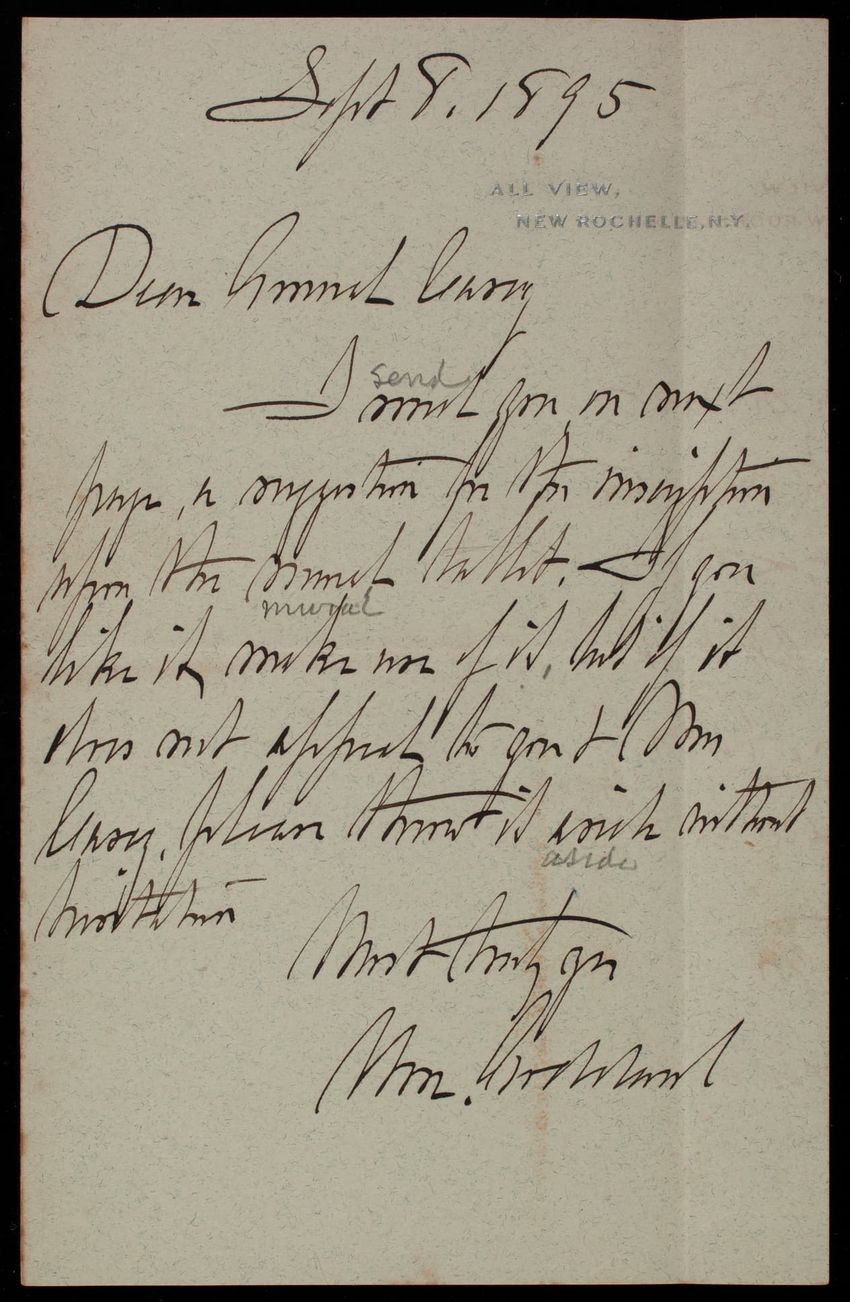 Sept 8. 1895
ALL VIEW,
NEW ROCHELLE, N.Y.
Dear General Casey
send
I send you on next
page, a suggestion for the inscription
upon the mural tablet. If you
mural
like it, make use of it, but if it
does not appeal to you & Mrs
Casey, please throw it aside without
aside
hesitation
Most truly yrs
Wm.